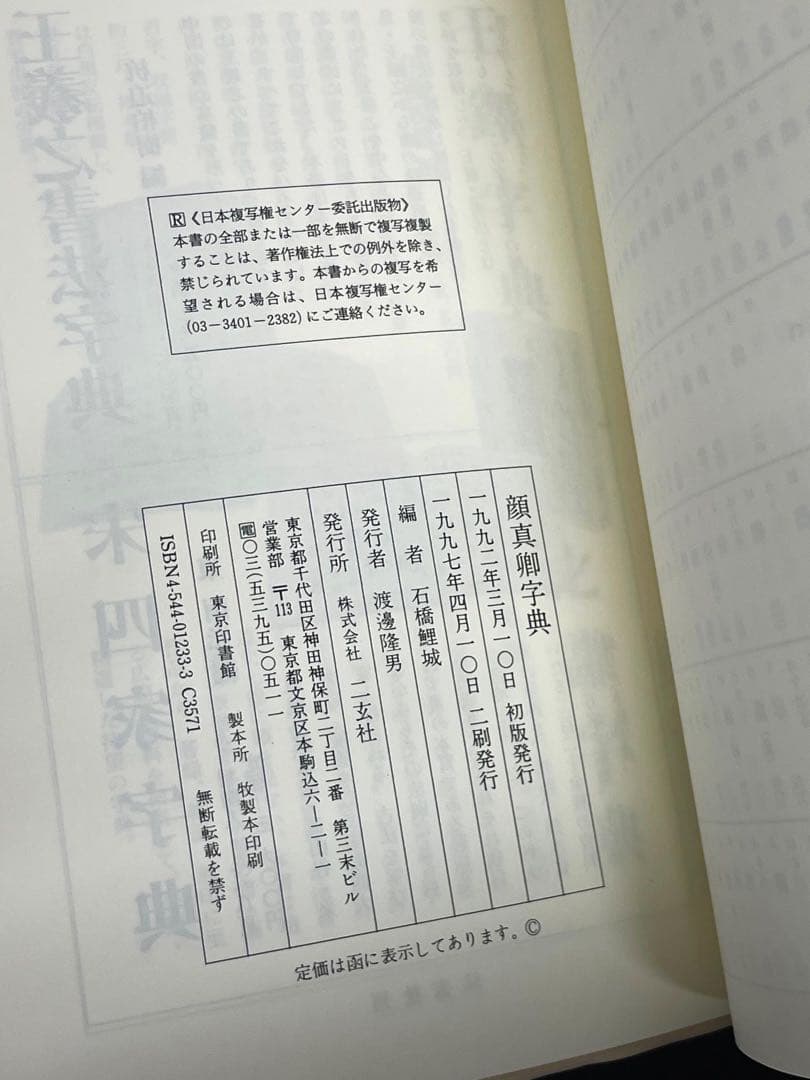 R《日本複写権センター委託出版物》
本書の全部または一部を無断で複写複製
することは、著作権法上での例外を除き、
禁じられています。本書からの複写を希
望される場合は、日本複写権センター
(03－3401－2382)にご連絡ください。
顔真卿字典
一九九二年三月一〇日 初版発行
一九九七年四月一〇日 二刷発行
編者 石橋鯉城
発行者 渡邊隆男
発行所 株式会社 二玄社
東京都千代田区神田神保町二丁目二番 第三末ビル
営業部 〒113 東京都文京区本駒込六―二―一
電〇三(五三九五)〇五一一
印刷所 東京印書館 製本所 牧製本印刷
ISBN4-544-01233-3 C3571 無断転載を禁ず
定価は函に表示してあります。©
王羲之書法字典
四家字典